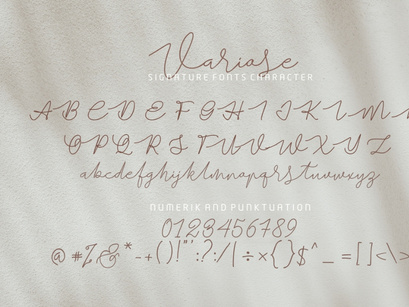 Variose
SIGNATURE FONTS CHARACTER
A B C D E F G H I J K L M
O P Q R S T U V W X Y Z
abcdefghijklmnopqrstuvwxyz
NUMERIK AND PUNKTUATION
0123456789
@ # % & * - + ( ) ! " ' : ? ; / | ÷ × { } $ ^ _ = [ ] < \ >